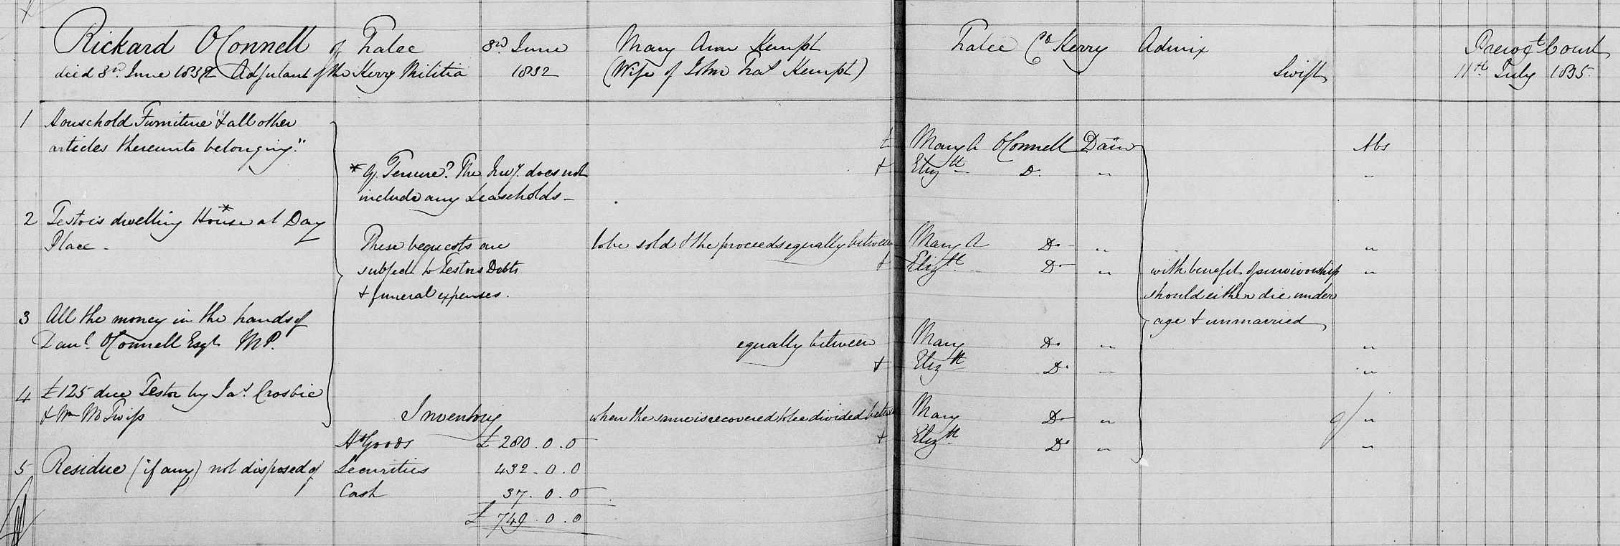 Rickard O'Connell of Tralee 3rd June Mary Ann Kempt Tralee Co Kerry Admix Prerog. Court
died 3rd June 1832 Adjutant of the Kerry Militia 1832 (Wife of John Kempt) Swift 11th July 1835
1 Household Furniture "& all other
articles thereunto belonging." to Mary A O'Connell Dau Abs
* Qy Tenure? The Invy. does not & Elizth Do "
include any Leaseholds -
2 Testors dwelling House* at Day
Place - These bequests are to be sold & the proceeds equally between Mary A Do "
subject to Testors Debts & Elizth Do " with benefit of survivorship "
& funeral expenses. should either die under
3 All the money in the hands of age & unmarried
Danl. O'Connell Esqr MP. equally between Mary Do " "
& Elizth Do " "
4 £125 due Testor by Jas. Crosbie
& Wm Inventory when the same is recovered to be divided between Mary Do " "
Hd Goods £ 280.0.0 & Elizth Do " "
5 Residue (if any) not disposed of Securities 432.0.0
Cash 37.0.0
£ 749.0.0